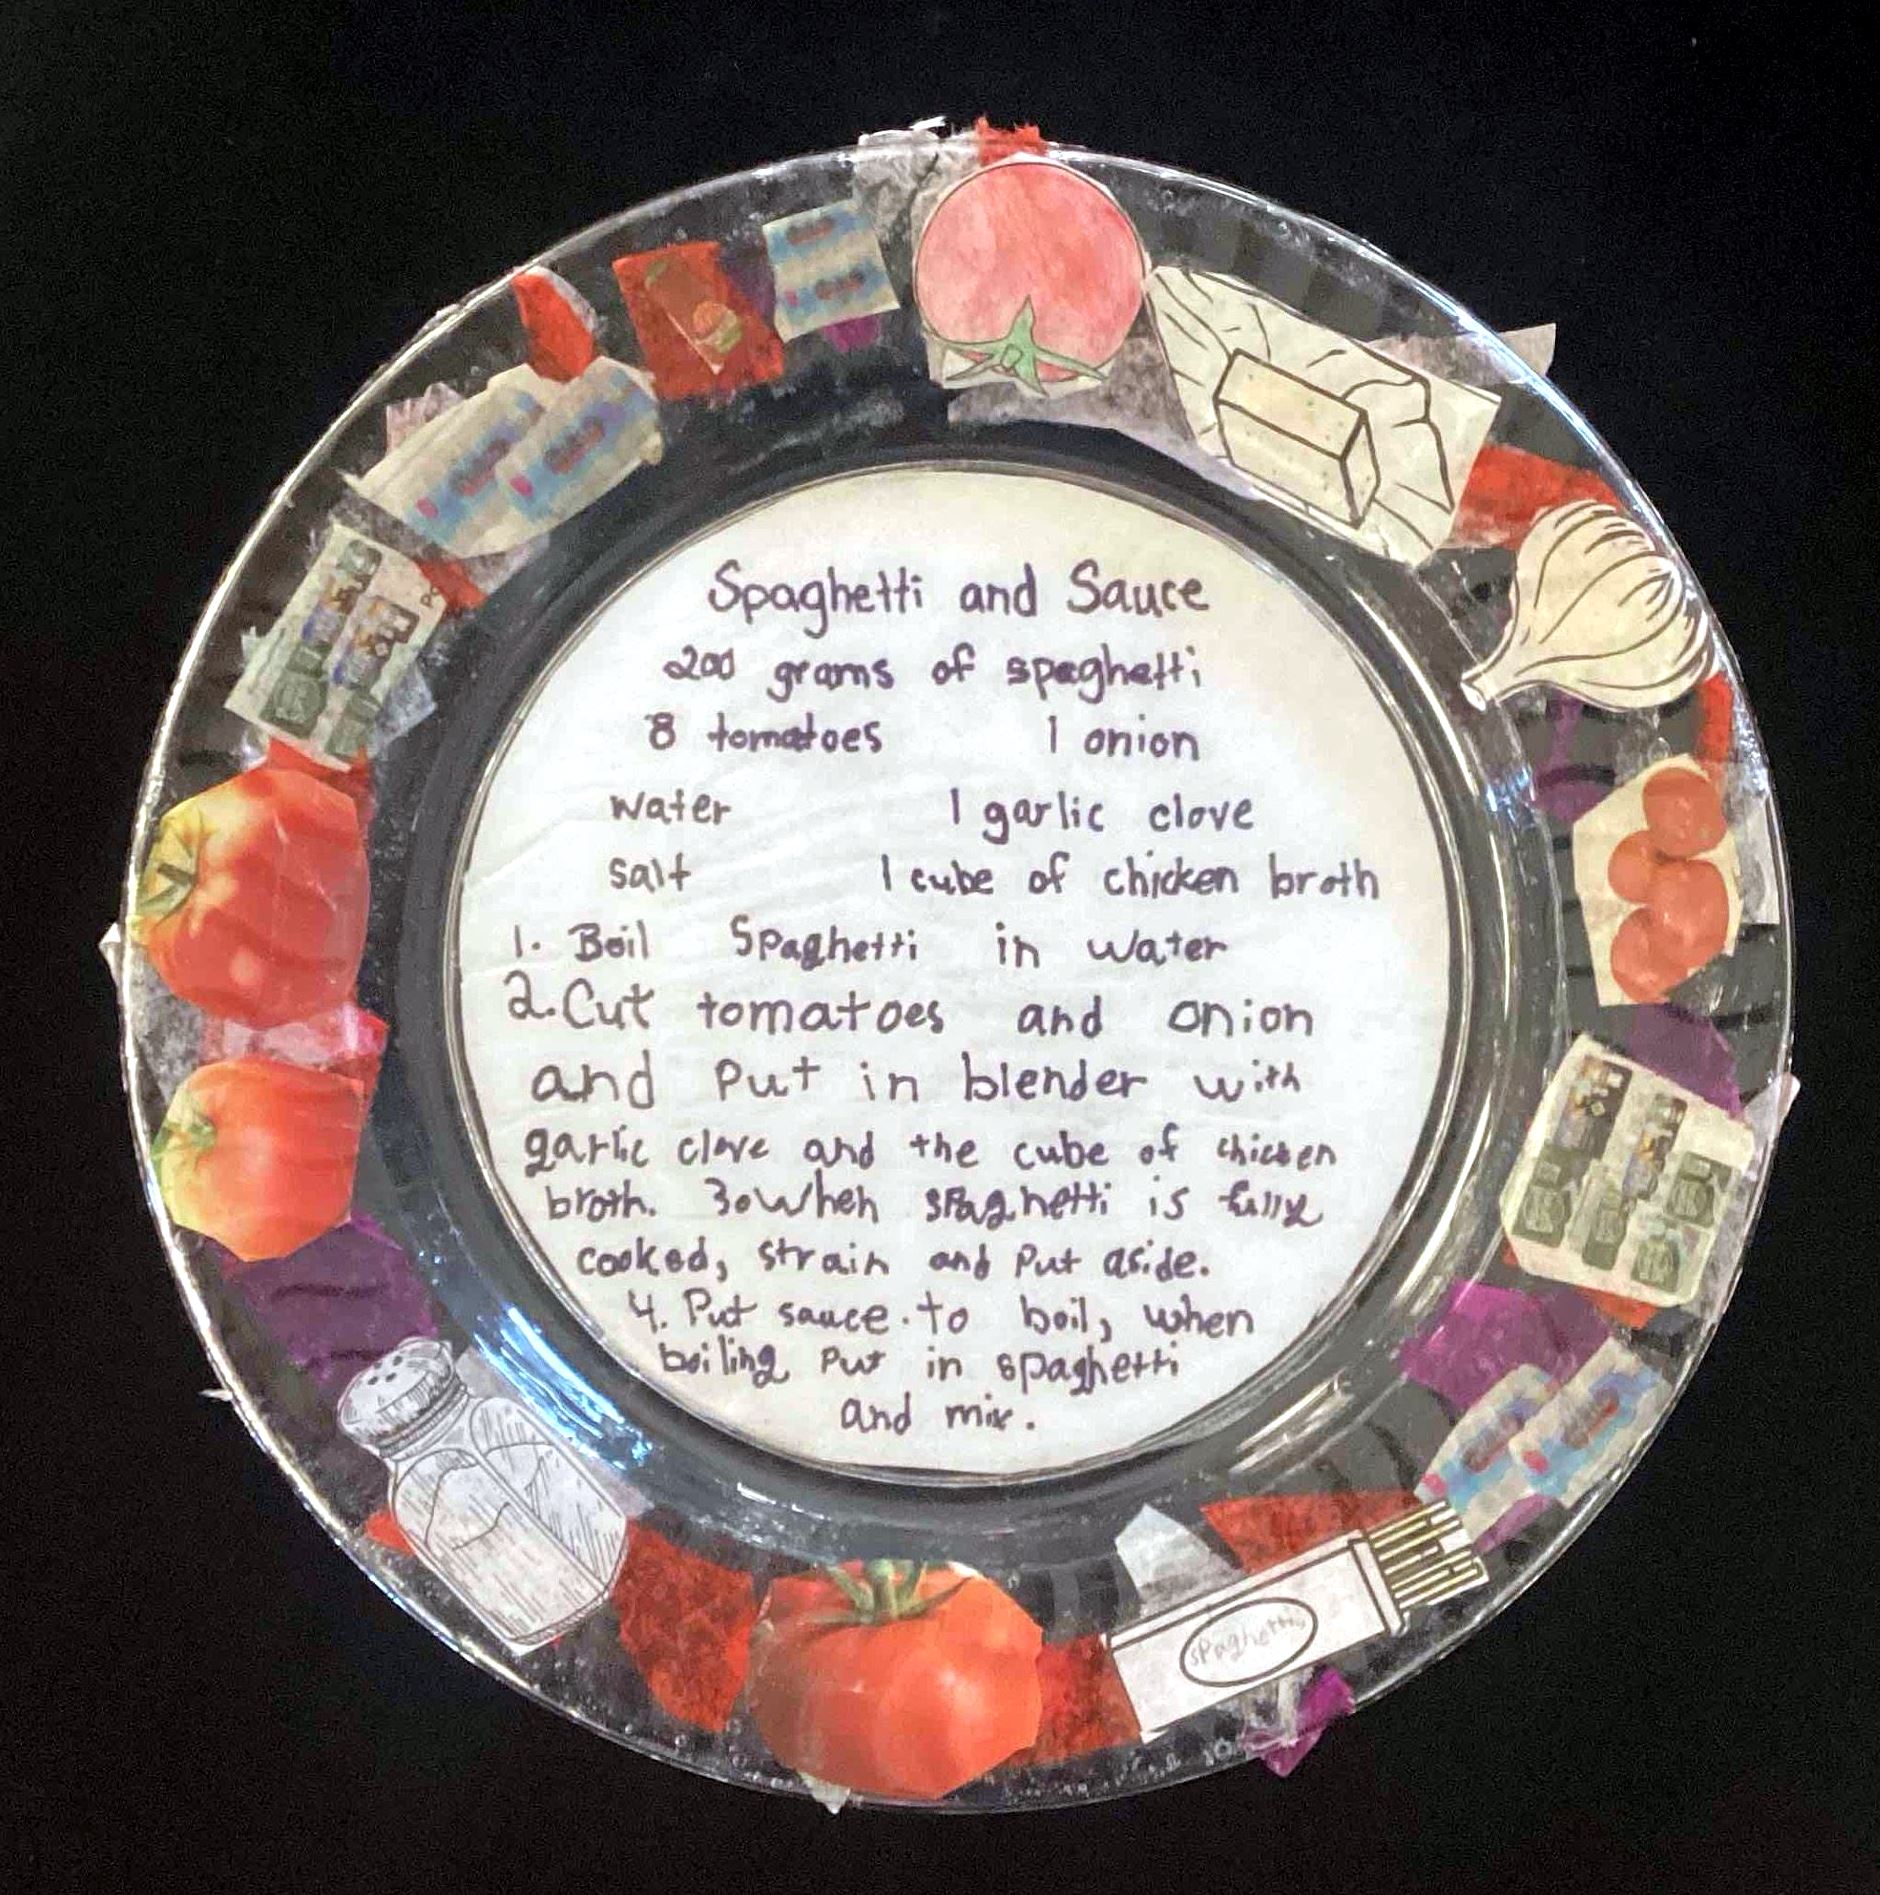 Spaghetti and Sauce
200 grams of spaghetti
8 tomatoes 1 onion
water 1 garlic clove
salt 1 cube of chicken broth
1. Boil Spaghetti in water
2. Cut tomatoes and onion
and Put in blender with
garlic clove and the cube of chicken
broth. 3. When spaghetti is fully
cooked, strain and Put aside.
4. Put sauce to boil, when
boiling Put in spaghetti
and mix.
spaghetti